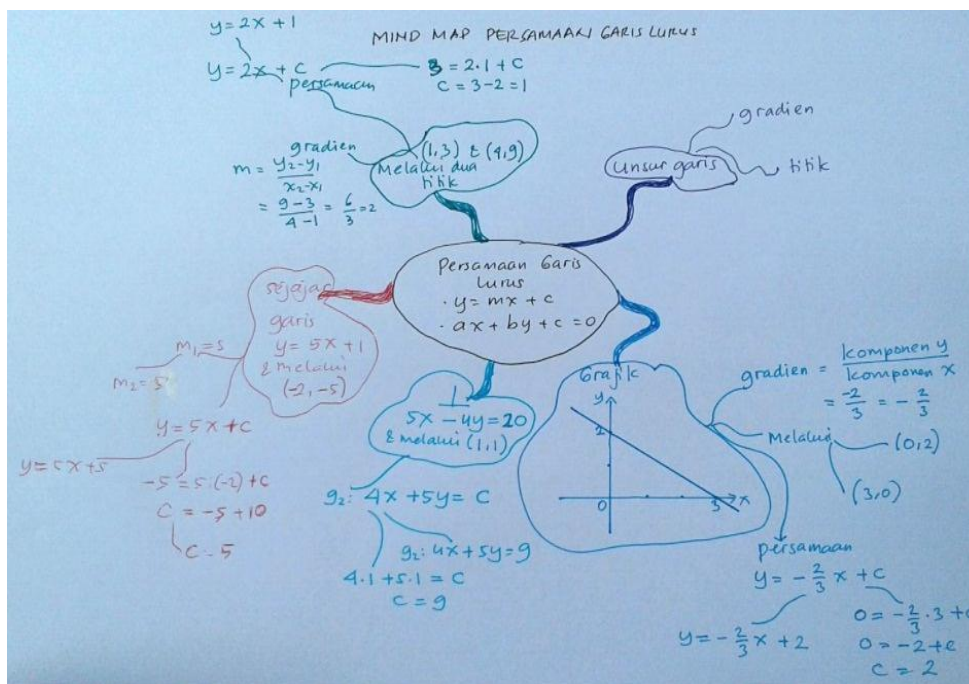 MIND MAP PERSAMAAN GARIS LURUS
y = 2x + 1
y = 2x + c
persamaan
3 = 2·1 + c
c = 3 - 2 = 1
gradien
m = y₂-y₁ / x₂-x₁
= 9-3 / 4-1 = 6/3 = 2
(1,3) & (4,9)
Melalui dua
titik
Unsur garis
gradien
titik
Persamaan Garis
Lurus
· y = mx + c
· ax + by + c = 0
sejajar
garis
y = 5x + 1
& melalui
(-2, -5)
m₁ = 5
m₂ = 5
y = 5x + c
y = 5x + 5
-5 = 5·(-2) + c
c = -5 + 10
c = 5
⊥
5x - 4y = 20
& melalui (1,1)
g₂: 4x + 5y = c
g₂: 4x + 5y = 9
4·1 + 5·1 = c
c = 9
Grafik
y
2
0
3
x
gradien = komponen y / komponen x
= -2/3 = - 2/3
Melalui
(0,2)
(3,0)
persamaan
y = - 2/3 x + c
y = - 2/3 x + 2
0 = - 2/3 · 3 + c
0 = -2 + c
c = 2